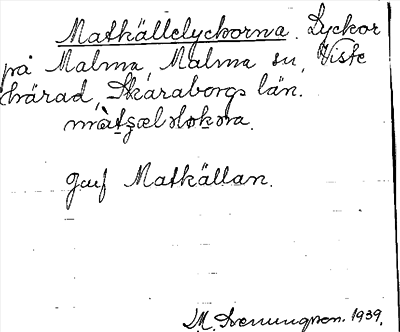 Matkällelyckorna. Lyckor
på Malma, Malma sn, Viste
härad, Skaraborgs län.
Jmf Matkällan.
M. Svenungsson. 1939.